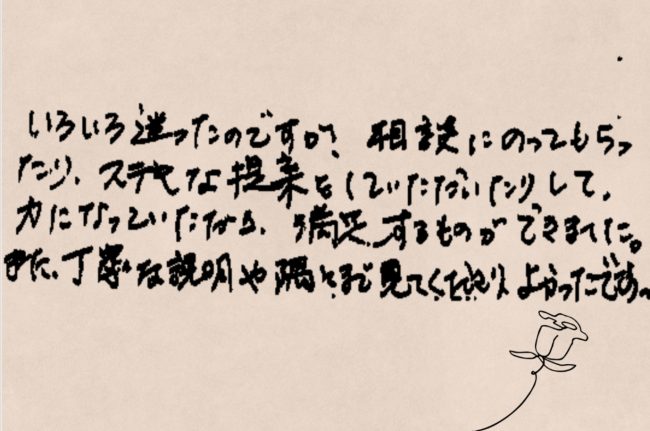 いろいろ迷ったのですが、相談にのってもらっ
たり、ステキな提案をしていただいたりして、
力になっていただき、満足するものができました。
また、丁寧な説明や隅々まで見てくださりよかったです。